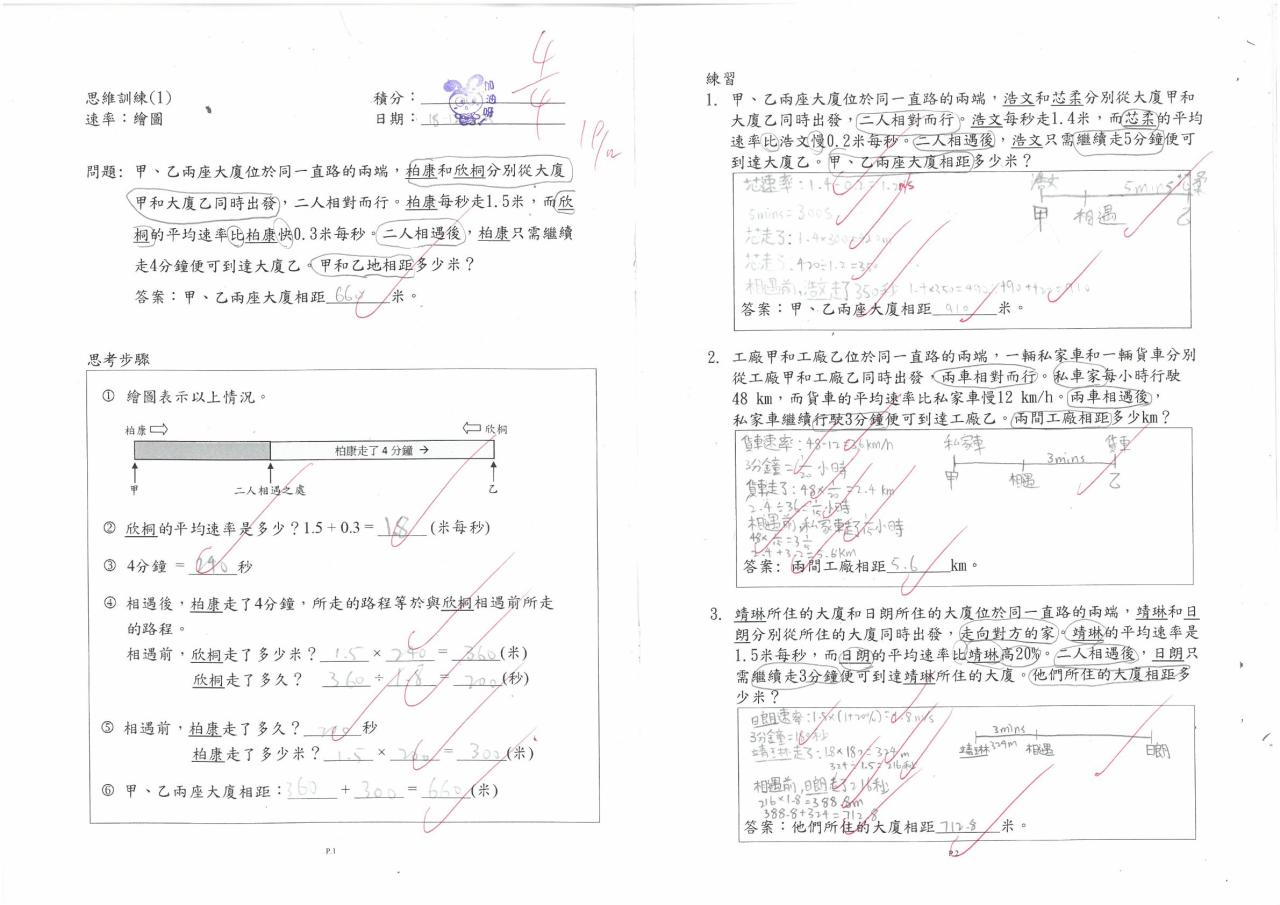 思維訓練(1)
積分：
4/4
速率：繪圖
日期：
19/12
問題: 甲、乙兩座大廈位於同一直路的兩端，柏康和欣桐分別從大廈
甲和大廈乙同時出發，二人相對而行。柏康每秒走1.5米，而欣
桐的平均速率比柏康快0.3米每秒。二人相遇後，柏康只需繼續
走4分鐘便可到達大廈乙。甲和乙地相距多少米？
答案：甲、乙兩座大廈相距 660 米。
思考步驟
① 繪圖表示以上情況。
柏康 欣桐
柏康走了4分鐘→
甲 二人相遇之處 乙
② 欣桐的平均速率是多少？1.5 + 0.3 = 1.8 (米每秒)
③ 4分鐘 = 240 秒
④ 相遇後，柏康走了4分鐘，所走的路程等於與欣桐相遇前所走
的路程。
相遇前，欣桐走了多少米？ 1.5 × 240 = 360 (米)
欣桐走了多久？ 360 ÷ 1.8 = 200 (秒)
⑤ 相遇前，柏康走了多久？ 200 秒
柏康走了多少米？ 1.5 × 200 = 300 (米)
⑥ 甲、乙兩座大廈相距：360 + 300 = 660 (米)
P.1
練習
1. 甲、乙兩座大廈位於同一直路的兩端，浩文和芯柔分別從大廈甲和
大廈乙同時出發，二人相對而行。浩文每秒走1.4米，而芯柔的平均
速率比浩文慢0.2米每秒。二人相遇後，浩文只需繼續走5分鐘便可
到達大廈乙。甲、乙兩座大廈相距多少米？
芯速率：1.4-0.2=1.2m/s
浩文 5mins 芯柔
甲 相遇 乙
5mins=300s
芯走了：1.4×300=420m
芯走了：420÷1.2=350
相遇前，浩文走了350秒 1.4×350=490 490+420=910
答案：甲、乙兩座大廈相距 910 米。
2. 工廠甲和工廠乙位於同一直路的兩端，一輛私家車和一輛貨車分別
從工廠甲和工廠乙同時出發，兩車相對而行。私車家每小時行駛
48 km，而貨車的平均速率比私家車慢12 km/h。兩車相遇後，
私家車繼續行駛3分鐘便可到達工廠乙。兩間工廠相距多少km？
貨車速率：48-12=36km/h
私家車 3mins 貨車
甲 相遇 乙
3分鐘=1/20小時
貨車走了：48×1/20=2.4 km
2.4÷36=1/15小時
相遇前，私家車走了1/15小時
48×1/15=3 1/5
2.4+3.2=5.6km
答案: 兩間工廠相距 5.6 km。
3. 靖琳所住的大廈和日朗所住的大廈位於同一直路的兩端，靖琳和日
朗分別從所住的大廈同時出發，走向對方的家。靖琳的平均速率是
1.5米每秒，而日朗的平均速率比靖琳高20%。二人相遇後，日朗只
需繼續走3分鐘便可到達靖琳所住的大廈。他們所住的大廈相距多
少米？
日朗速率：1.5×(1+20%)=1.8m/s
3mins
靖琳 324m 相遇 日朗
3分鐘=180秒
靖琳走了：1.8×180=324m
324÷1.5=216秒
相遇前，日朗走了216秒
216×1.8=388.8m
388.8+324=712.8
答案：他們所住的大廈相距 712.8 米。
P.2